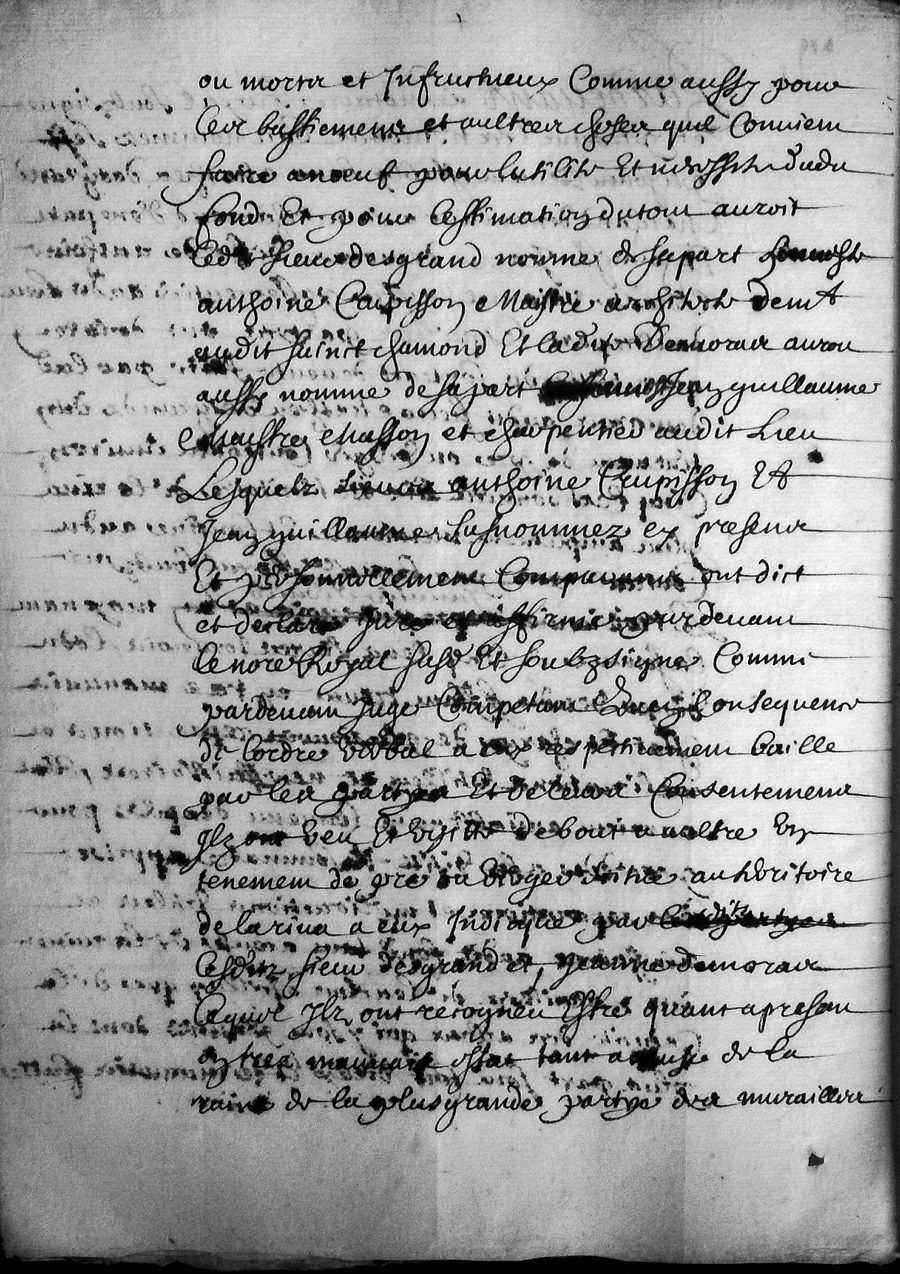 ou morts et Infructueux Comme aussy pour
les bastiemens et aultres choses quil Convient
faire a noeuf pour lutilité Et necessité dudu
fond Et pour lestimation du tout auroit
led sieur desgrand nomme de sa part
anthoine Crupisson Maistre architecte demt
audit sainct chamond Et ladite Demorair auroit
aussy nomme de sa part Jean guillaume
Maistre Masson et charpentier audit Lieu
Lesquelz sieurs anthoine Crupisson Et
Jean guillaume susnommez en presence
Et personnellement Comparants ont dict
et desclaré Juré et affirmé pardevant
le nore Royal susd Et soubzsigne Comme
pardevant Juge Competant Et en Consequence
de lordre verbal a eux respectivement baille
par les partyes Et de leurs Consentements
Ilz ont veu Et visitté de bout a aultre un
tenement de pré ou vergier au territoire
de la riva a eux Indicque par
lesditz sieur desgrand et Jeanne demorair
Lequel Ilz ont recogneu Estre quant a present
en tres mauvais estat tant a cause de la
ruine de la plus grande partye des murailles